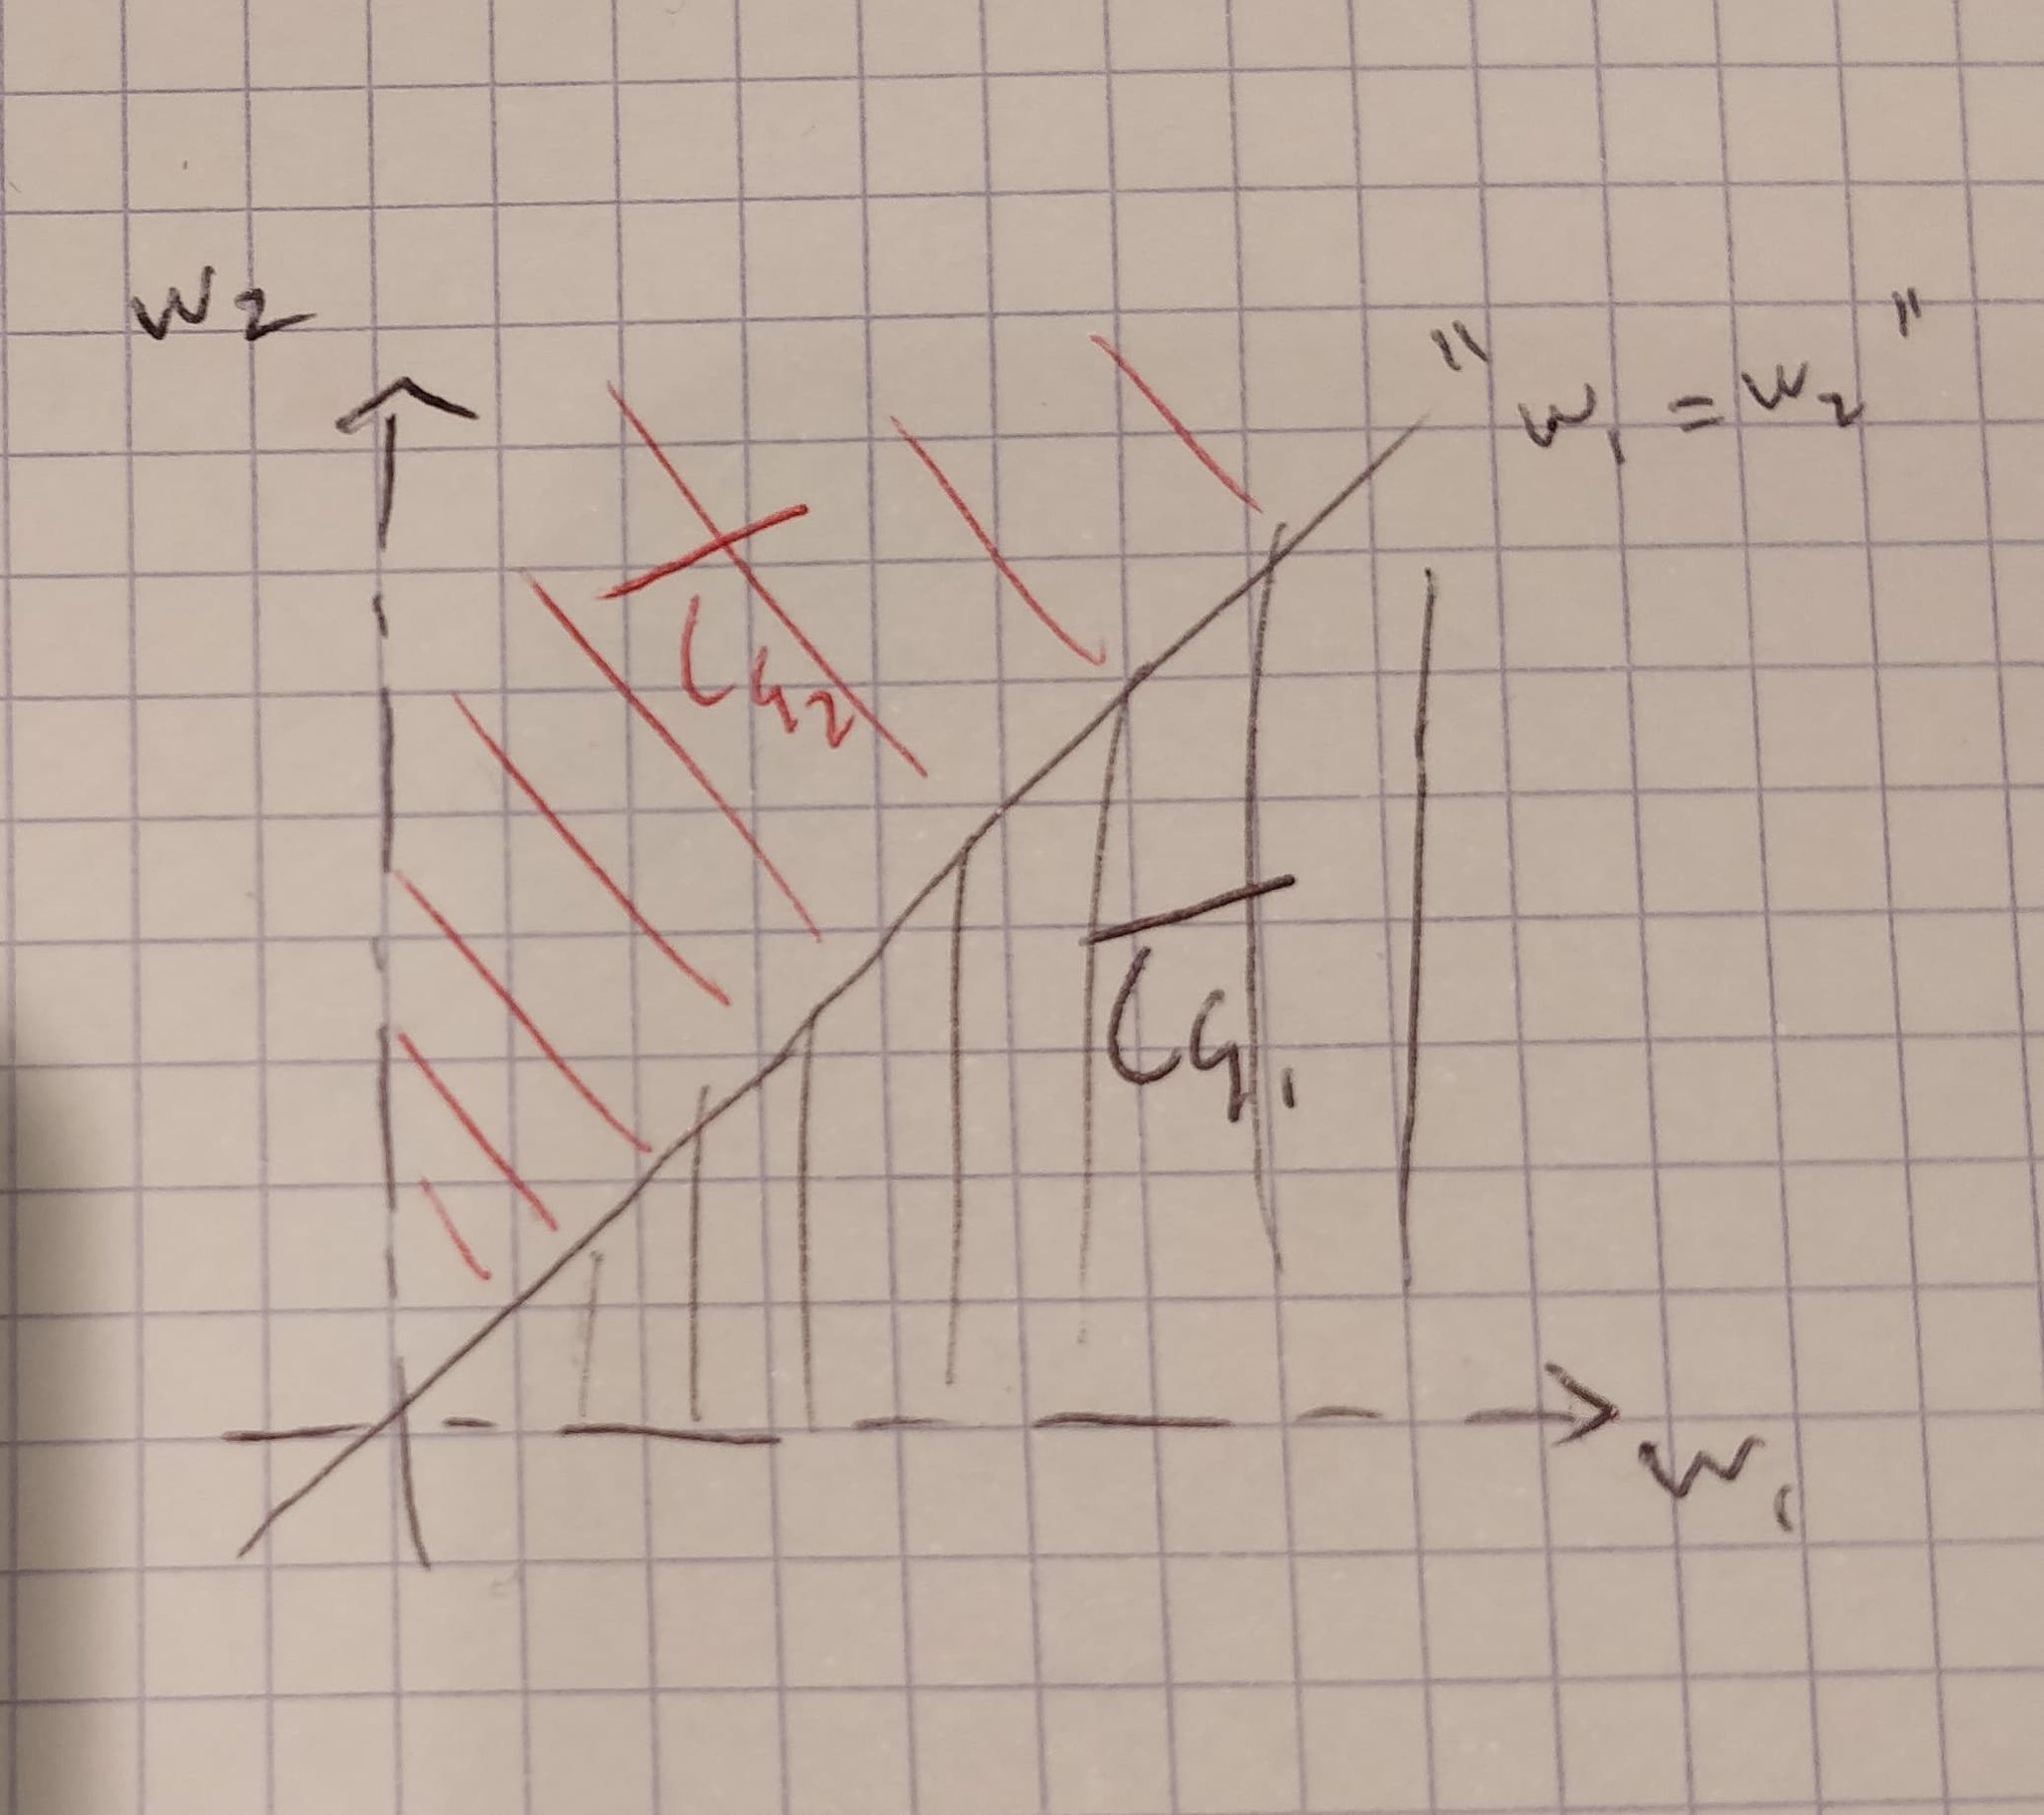 w₂
"w₁ = w₂"
C̅G₂
C̅G₁
w₁